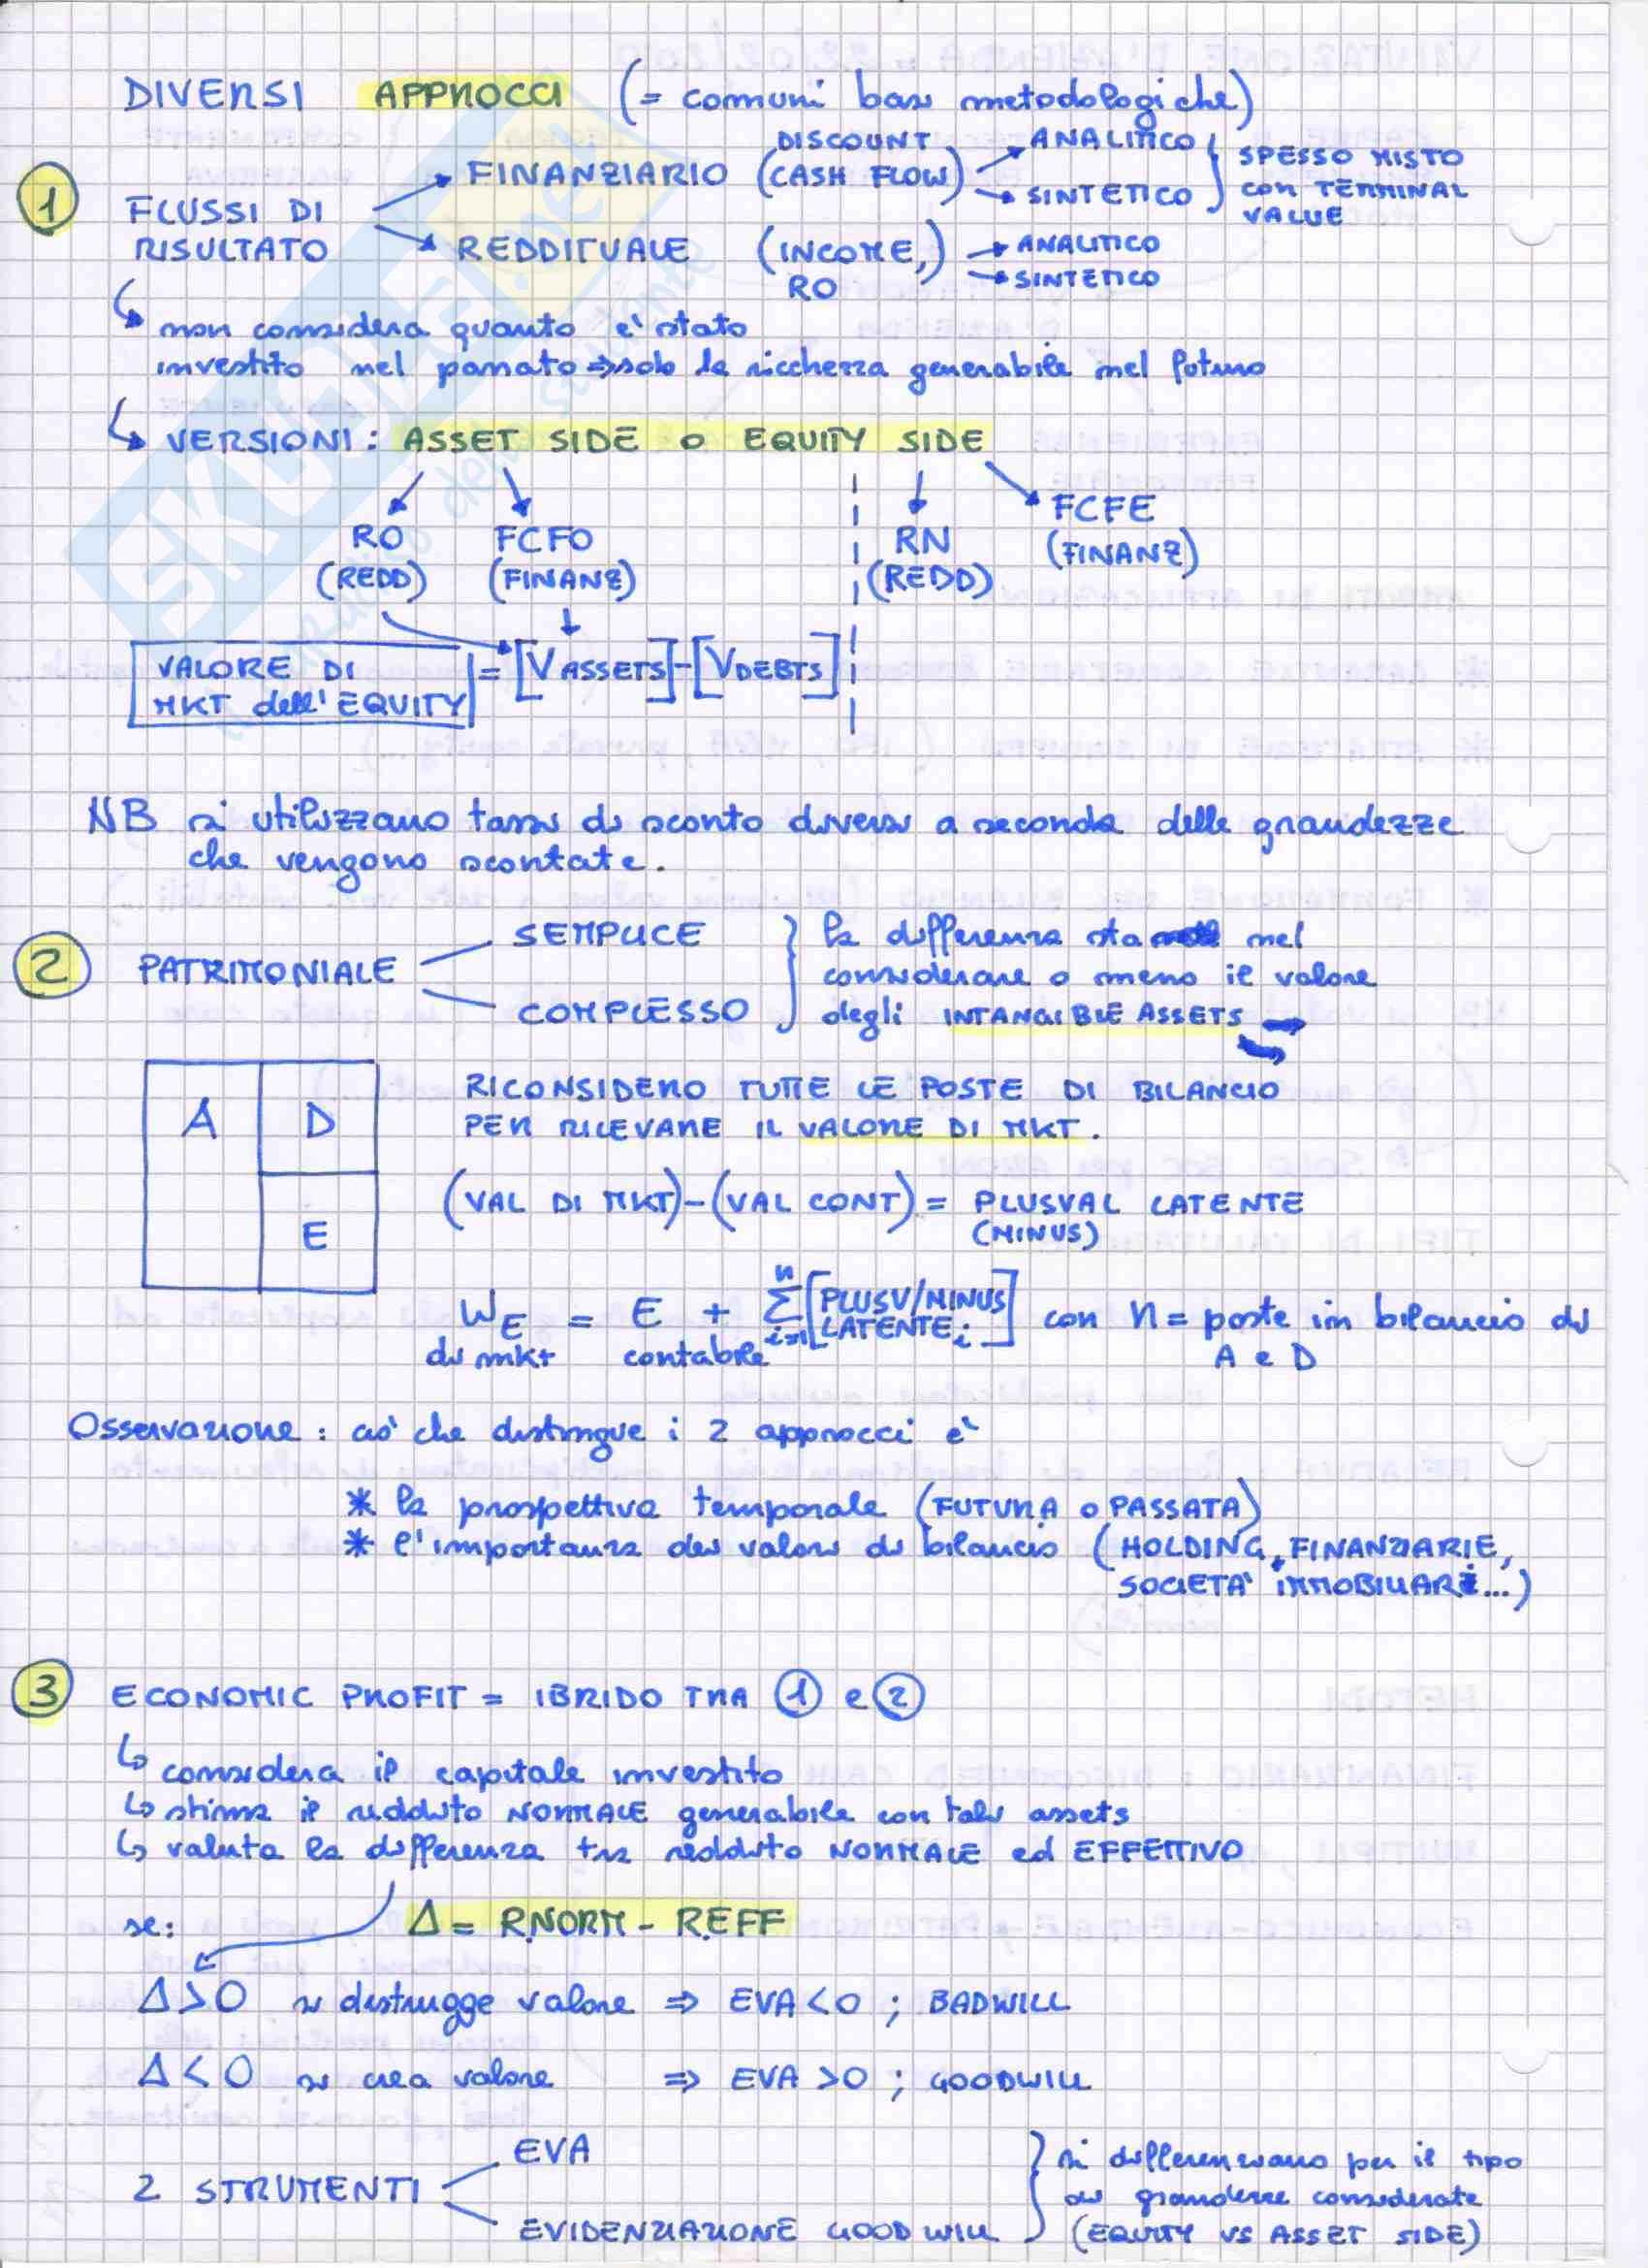 DIVERSI APPROCCI (= comuni basi metodologiche)
1 FLUSSI DI RISULTATO
FINANZIARIO (DISCOUNT CASH FLOW) ANALITICO
SINTETICO
SPESSO MISTO
CON TERMINAL
VALUE
REDDITUALE (INCOME, RO) ANALITICO
SINTETICO
non considera quanto è stato
investito nel passato ⇒ solo la ricchezza generabile nel futuro
VERSIONI: ASSET SIDE o EQUITY SIDE
RO FCFO RN FCFE
(REDD) (FINANZ) (REDD) (FINANZ)
VALORE DI MKT dell'EQUITY = [VASSETS] - [VDEBTS]
NB si utilizzano tassi di sconto diversi a seconda delle grandezze
che vengono scontate.
2 PATRIMONIALE
SEMPLICE
COMPLESSO
la differenza sta nel
considerare o meno il valore
degli INTANGIBLE ASSETS
A D
E
RICONSIDERO TUTTE LE POSTE DI BILANCIO
PER RILEVARE IL VALORE DI MKT.
(VAL DI MKT) - (VAL CONT) = PLUSVAL LATENTE
(MINUS)
WE = E + Σ n i=1 [PLUSV/MINUS LATENTE i] con n = poste in bilancio di
di mkt contabile A e D
Osservazione: ciò che distingue i 2 approcci è
* la prospettiva temporale (FUTURA o PASSATA)
* l'importanza dei valori di bilancio (HOLDING, FINANZIARIE,
SOCIETA' IMMOBILIARI...)
3 ECONOMIC PROFIT = IBRIDO TRA 1 e 2
considera il capitale investito
stima il reddito NORMALE generabile con tali assets
valuta la differenza tra reddito NORMALE ed EFFETTIVO
se: Δ = R.NORM - R.EFF
Δ>0 si distrugge valore ⇒ EVA<0 ; BADWILL
Δ<0 si crea valore ⇒ EVA>0 ; GOODWILL
2 STRUMENTI
EVA
EVIDENZIAZIONE GOODWILL
si differenziano per il tipo
di grandezze considerate
(EQUITY VS ASSET SIDE)